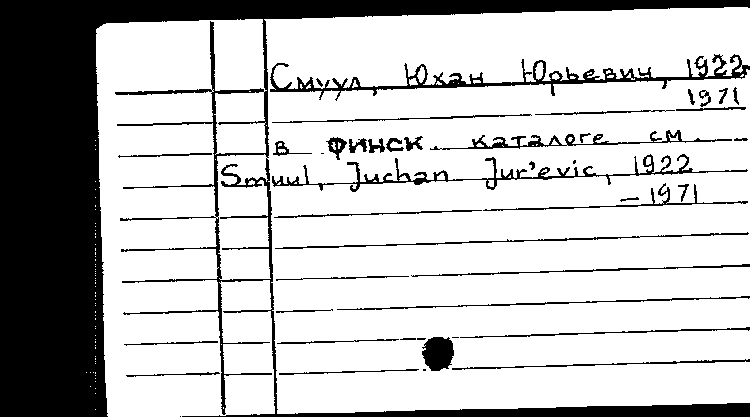 Смуул, Юхан Юрьевич, 1922-
1971
в финск. каталоге см.
Smuul, Juchan Jur'evic, 1922
– 1971